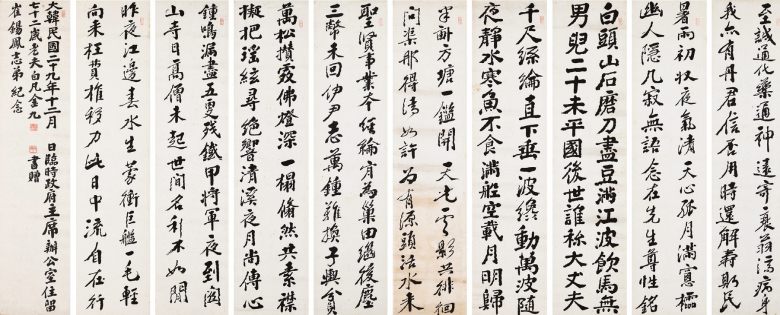 至誠通化藥通神 遠寄衰翁濟病身
我亦有丹君信否 用時還解壽斯民
暑雨初收夜氣清 天心孤月滿窓欞
幽人隱几寂無語 念在先生尊性銘
白頭山石磨刀盡 豆滿江波飲馬無
男兒二十未平國 後世誰稱大丈夫
千尺絲綸直下垂 一波纔動萬波隨
夜靜水寒魚不食 滿船空載月明歸
半畝方塘一鑑開 天光雲影共徘徊
問渠那得清如許 為有源頭活水來
聖賢事業本經綸 肯為巢由繼後塵
三幣未回伊尹志 萬鍾難換子輿貧
萬松攢 佛燈深 一榻翛然共素襟
擬把瑤絃尋絶響 清溪夜月尚傳心
鐘鳴漏盡五更殘 鐵甲將軍夜到關
山寺日高僧未起 世間名利不如閒
昨夜江邊春水生 蒙衝巨艦一毛輕
向來枉費推移力 此日中流自在行
大韓民國二十九年十二月 日臨時政府主席辦公室住留
七十二歲老夫白凡金九 書贈
崔錫鳳志弟 紀念